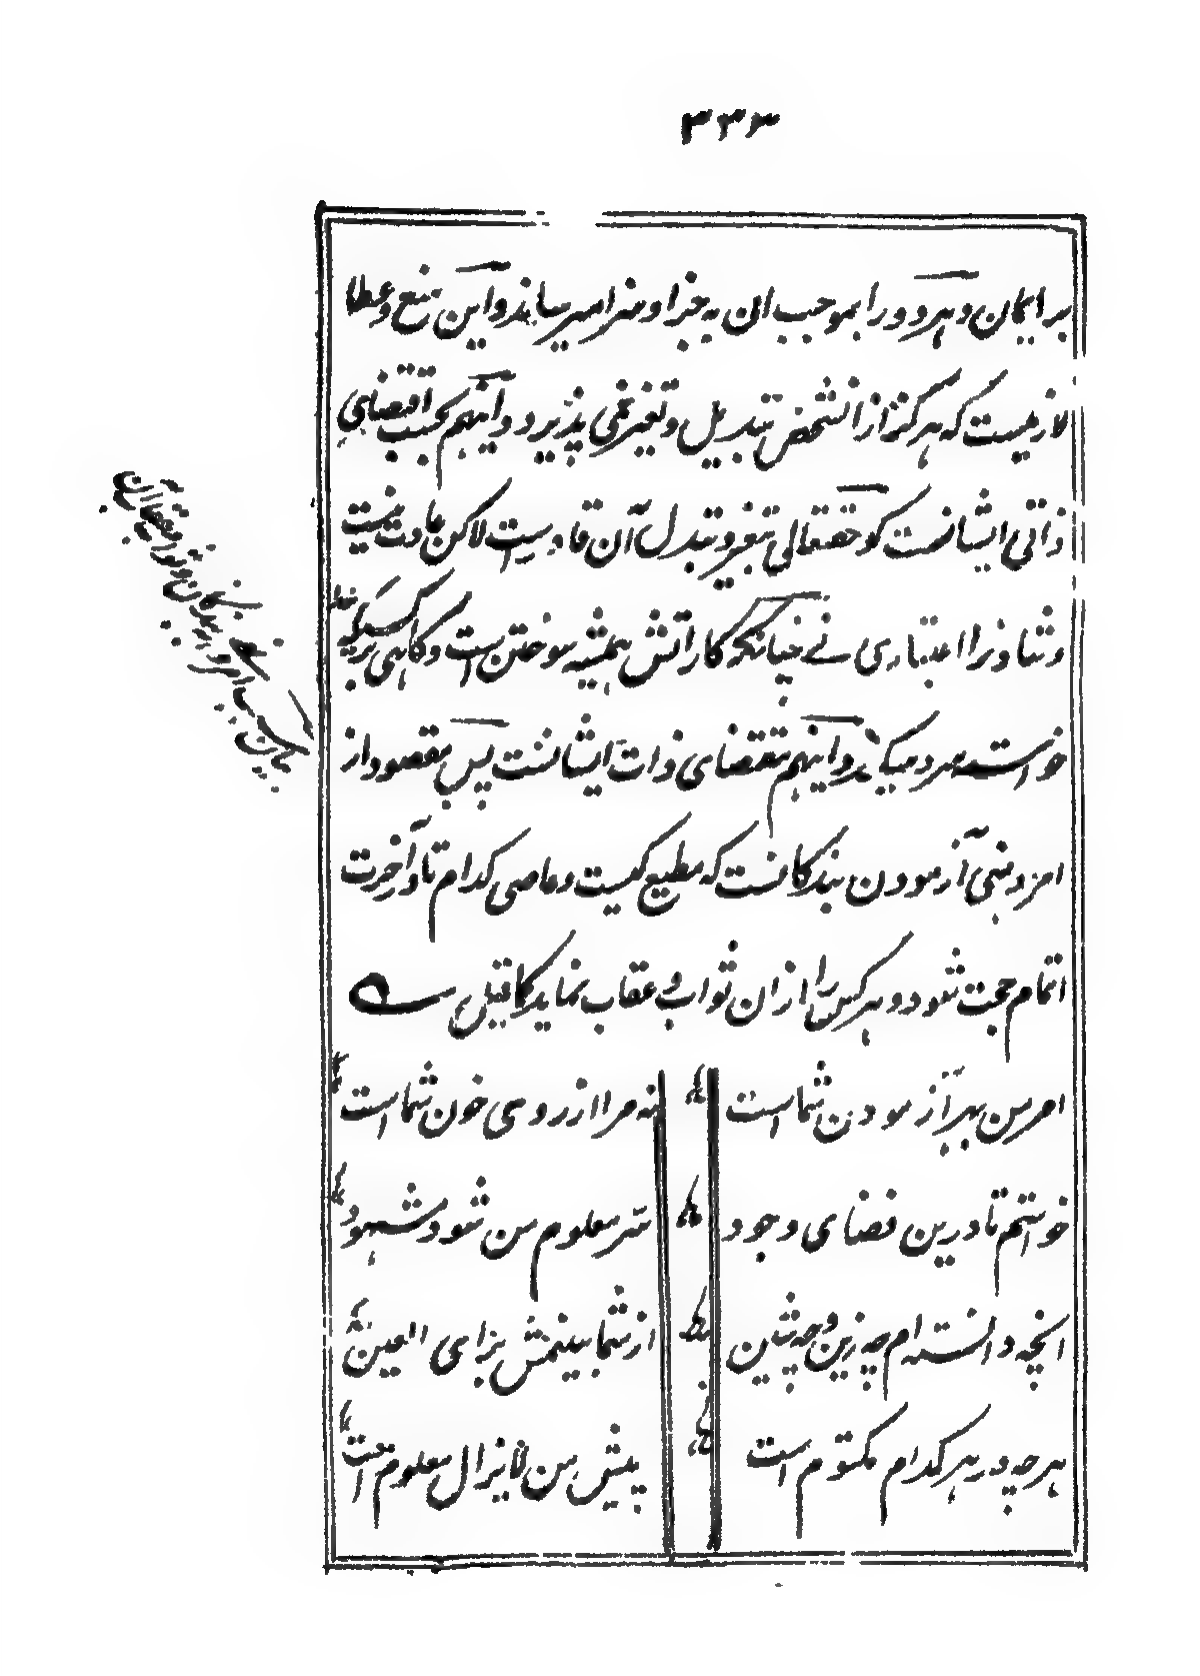 ۳۳۳
بر ایمان و هر دو را بموجب ان به جزا و سزا میرساند و این منع و عطا
لازمیست که هرگز از انشخص تبدیل و تغیر نمی پذیرد و اینهم بحسب اقتضای
ذاتی ایشانست گو حقتعالی تبغیر و تبدل آن قادرست لاکن عادت نیست
و شاذ را اعتباری نے چنانکه کار اتش همیشه سوختن است و گاهی
خواسته سرد میگردد اینهم مقتضای ذات ایشانست پس مقصود از
امر و نهی آزمودن بندگانست که مطیع کیست و عاصی کدام تا در آخرت
اتمام حجت شود و هر کس را ازان ثواب و عقاب نماید کما قیل
امر من بهر آزمودن شماست
نه مرا از روی خون شماست
خواستم تا درین فضای وجود
سر معلوم من شود مشهود
انچه دانسته ام چه زین و چه شین
از شما بینمش برای العین
هر چه در هر کدام مکتوم است
پیش من لایزال معلوم است